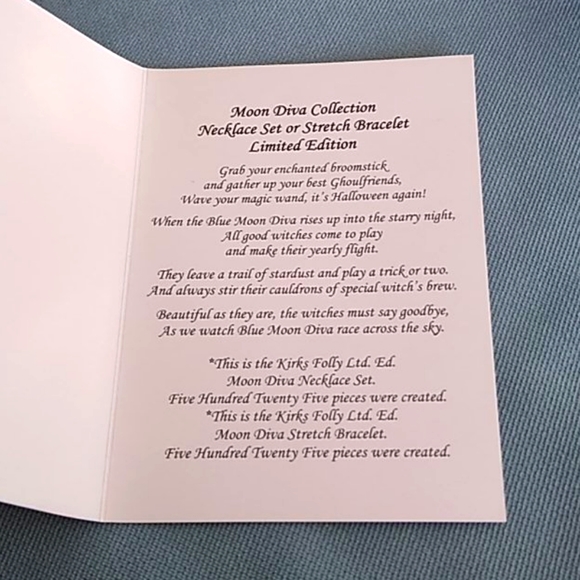 Moon Diva Collection
Necklace Set or Stretch Bracelet
Limited Edition
Grab your enchanted broomstick
and gather up your best Ghoulfriends,
Wave your magic wand, it's Halloween again!
When the Blue Moon Diva rises up into the starry night,
All good witches come to play
and make their yearly flight.
They leave a trail of stardust and play a trick or two.
And always stir their cauldrons of special witch's brew.
Beautiful as they are, the witches must say goodbye,
As we watch Blue Moon Diva race across the sky.
*This is the Kirks Folly Ltd. Ed.
Moon Diva Necklace Set.
Five Hundred Twenty Five pieces were created.
*This is the Kirks Folly Ltd. Ed.
Moon Diva Stretch Bracelet.
Five Hundred Twenty Five pieces were created.